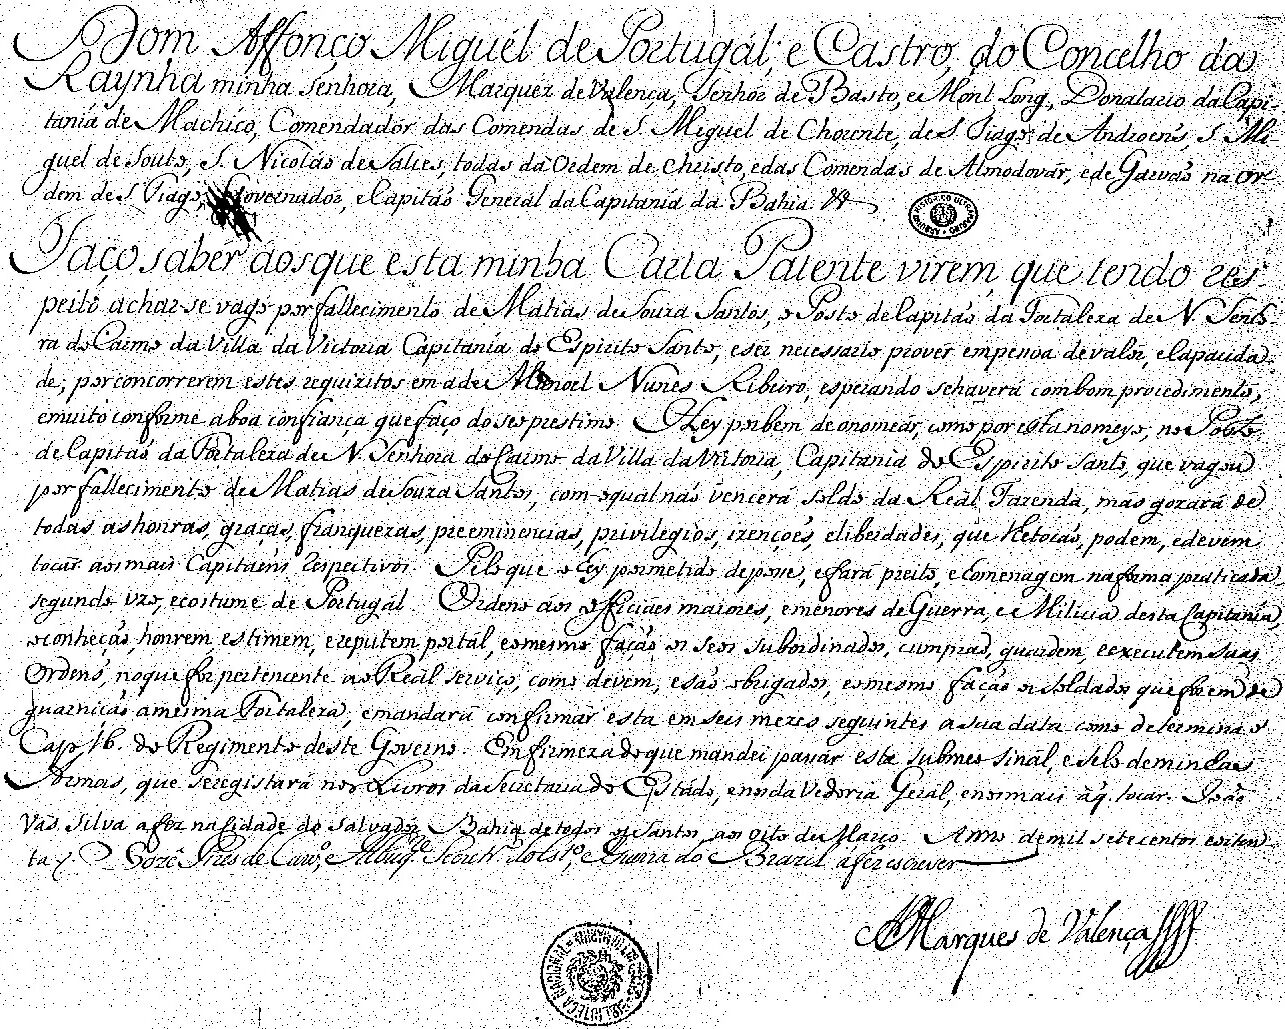 Dom Affonço Miguél de Portugál, e Castro, do Concelho da
Raynha minha Senhora, Marquez de Valença, Senhor de Basto, e Mont Long, Donatario da Capi-
tania de Machico, Comendador das Comendas de S. Miguel de Chorente, de S. Tiago de Androens, S. Mi-
guel de Souto, e S. Nicoláo de Salles, todas da Ordem de Christo, e das Comendas de Almodovár, e de Garváo na Or-
dem de S. Tiago, Governador, e Capitáo General da Capitania da Bahia &
Faço saber áos que esta minha Carta Patente virem, que tendo res-
peito a char-se vago por fallecimento de Matias de Souza Santos, o Posto de Capitáo da Fortaleza de N. Senho-
ra do Carmo da Villa da Victoria Capitania do Espirito Santo, e ser necessario prover em pessoa de valór, e Capacida-
de; por concorrerem estes requizitos em a de Manoel Nunes Ribeiro, esperando se haverá com bom procedimento,
e muito conforme a boa confiança que faço do seo prestimo. Hey por bem de o nomeár, como por esta nomeyo, no Posto
de Capitáo da Fortaleza de N. Senhora do Carmo da Villa da Victoria, Capitania do Espirito Santo, que vagou
por fallecimento de Matias de Souza Santos, com o qual náo vencerá soldo da Real Fazenda, mas gozará de
todas as honras, graças, franquezas, preeminencias, privilegios, izençóes, e liberdades, que lhe tocáo, podem, e devem
tocar aos mais Capitáens respectivos. Pelo que o Hey por metido de posse, e fará preito, e Comenagem na forma praticada
segundo uzo, e costume de Portugál. Ordeno aos officiaes maiores, e menores de Guerra, e Milicia desta Capitania,
o conheçáo, honrem, estimem, e reputem por tal, e o mesmo façáo os seos subordinados, cumpráo, guardem, e executem suas
Ordens, no que for pertencente ao Real serviço, como devem, e sáo obrigados, e o mesmo façáo os soldados que forem de
guarniçáo a mesma Fortaleza, e mandará confirmar esta em seis mezes seguintes a sua data como determina o
Capo 16. do Regimento deste Governo. Em firmeza do que mandei passar esta sub meo sinál, e selo de minhas
Armas, que se registará nos Livros da Secretaria do Estádo, e nos da Vedoria Geral, e nos mais a q. tocar. Joáo
Vas Silva a fez na Cidade do Salvador Bahia de todos os Santos aos oito de Março. Anno de mil sete centos e oiten-
ta
do Brazil a fez escrever
Marques de Valença